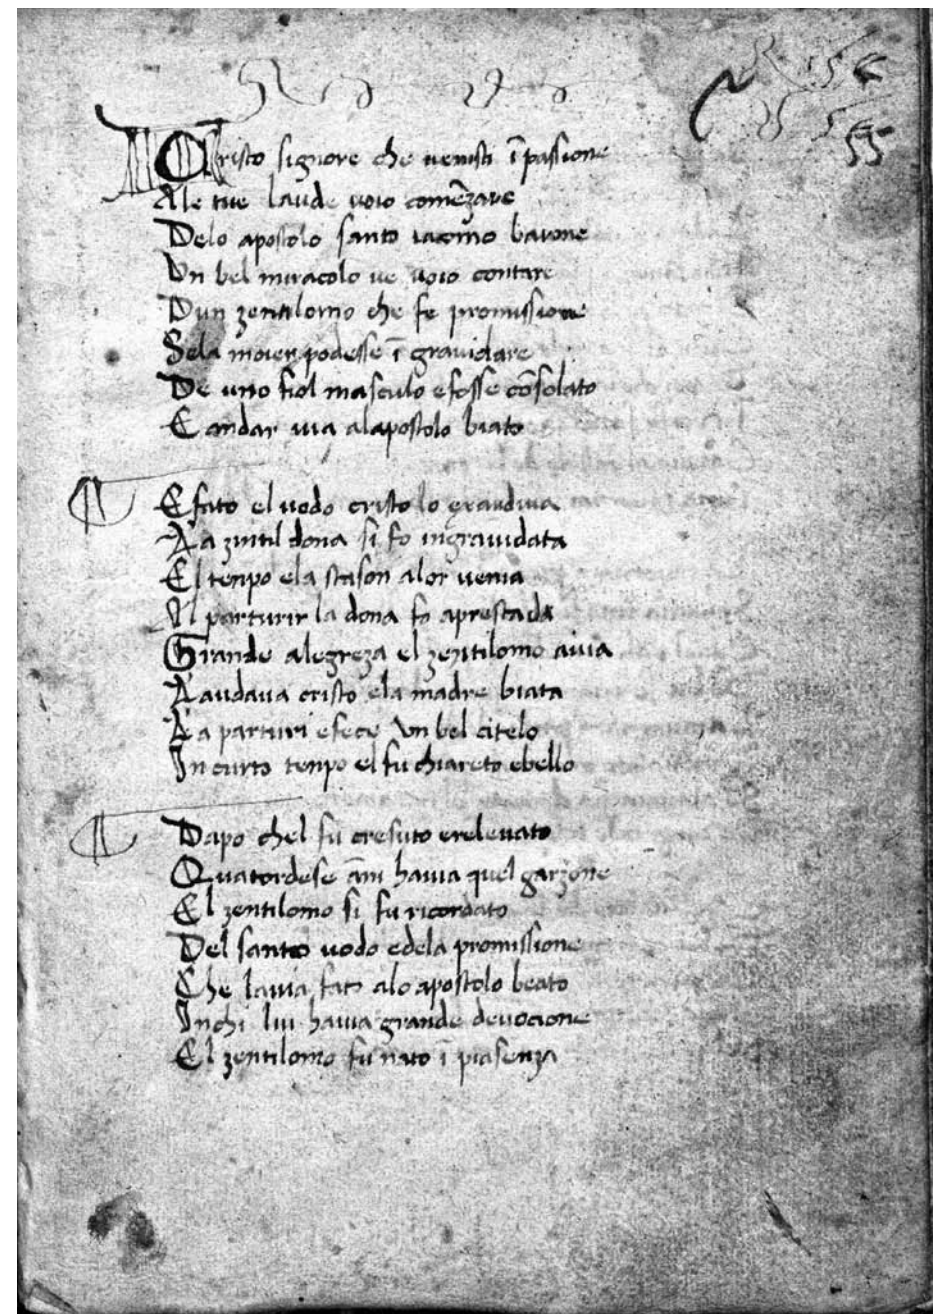 Cristo signore che uenisti ĩ passione
Ale tue laude uoio comẽzare
Delo apostolo santo iacomo barone
Vn bel miracolo ue uoio contare
Dun zentilomo che fe promissione
Sela moier podesse ĩ grauidare
De uno fiol masculo e fosse cõsolato
E andar uia alapostolo biato
E fato el uodo cristo lo exaudiua
La zintil dona si fo ingrauidata
El tenpo ela stason alor uenia
Al parturir la dona fo aprestada
Grande alegreza el zentilomo auia
Laudaua cristo ela madre biata
La parturi e fece vn bel citelo
In curto tenpo el fu chiareto ebello
Dapo chel fu cresuto ereleuato
Quatordese ãni hauia quel garzone
El zentilomo si fu ricordato
Del santo uodo edela promissione
Che lauia fato alo apostolo beato
Inchi lui hauia grande deuocione
El zentilomo fu nato ĩ piasenza